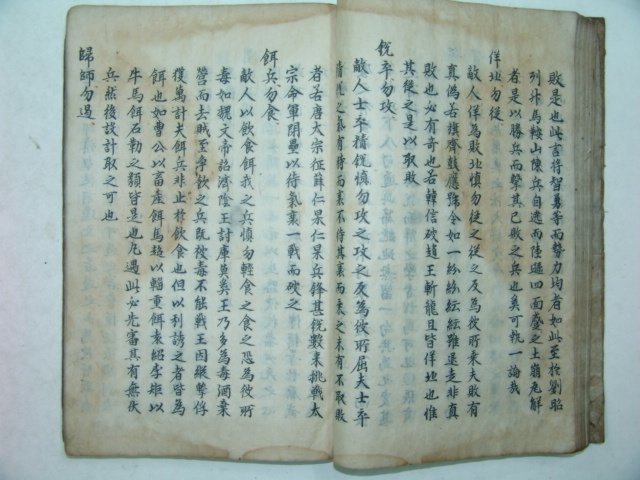 敗是也此言將智等而勢力均者如此至於劉昭
列於馬鞍山陳兵自遶而陸遜四面蹙之土崩瓦解
者是以勝兵而擊其已敗之兵也奚可執一論哉
佯北勿從
敵人佯為敗北慎勿從之從之反為彼所乘夫敗有
真偽若旗齊鼓應號令如一紛紛紜紜雖退走非真
敗也必有奇也若韓信破趙王斬龍且皆佯北也惟
其從之是以取敗
銳卒勿攻
敵人士卒精銳慎勿攻之攻之反為彼所屈夫士卒
精銳之氣有待而衰不待其衰而乘之未有不取敗
者若唐太宗征薛仁杲仁杲兵鋒甚銳數來挑戰太
宗令軍閉壘以待氣衰一戰而破之
餌兵勿食
敵人以飲食餌我之兵慎勿輕食之食之恐為彼所
毒如魏文帝詔濟陰王討庫莫奚王乃多為毒酒棄
營而去賊至爭飲之兵既彼毒不能戰王因縱擊俘
獲萬計夫餌兵非止於飲食也但以利誘之者皆為
餌也如曹公以畜產餌馬超以輜重餌袁紹李矩以
牛馬餌石勒之類皆是也凡遇此必先審其有無伏
兵然後設計取之可也
歸師勿遏